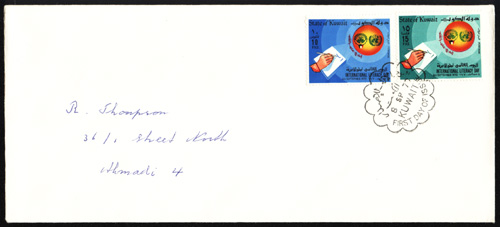 State of Kuwait
دولة الكويت
15
FILS
INTERNATIONAL LITERACY DAY
State of Kuwait
دولة الكويت
INTERNATIONAL LITERACY DAY
KUWAIT
FIRST DAY OF ISSUE
R. Thompson
36/1, Street North
Ahmadi 4